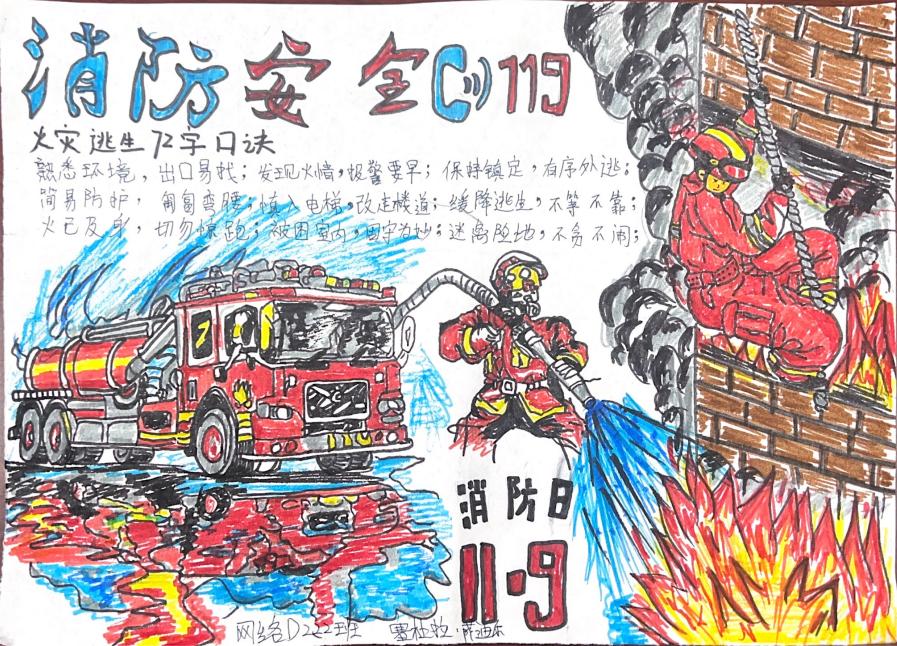 消防安全119
火灾逃生72字口诀
熟悉环境，出口易找；发现火情，报警要早；保持镇定，有序外逃；
简易防护，匍匐弯腰；慎入电梯，改走楼道；缓降逃生，不等不靠；
火已及身，切勿惊跑；被困室内，固守为妙；速离险地，不贪不闹；
消防日
11·9
网络D222班